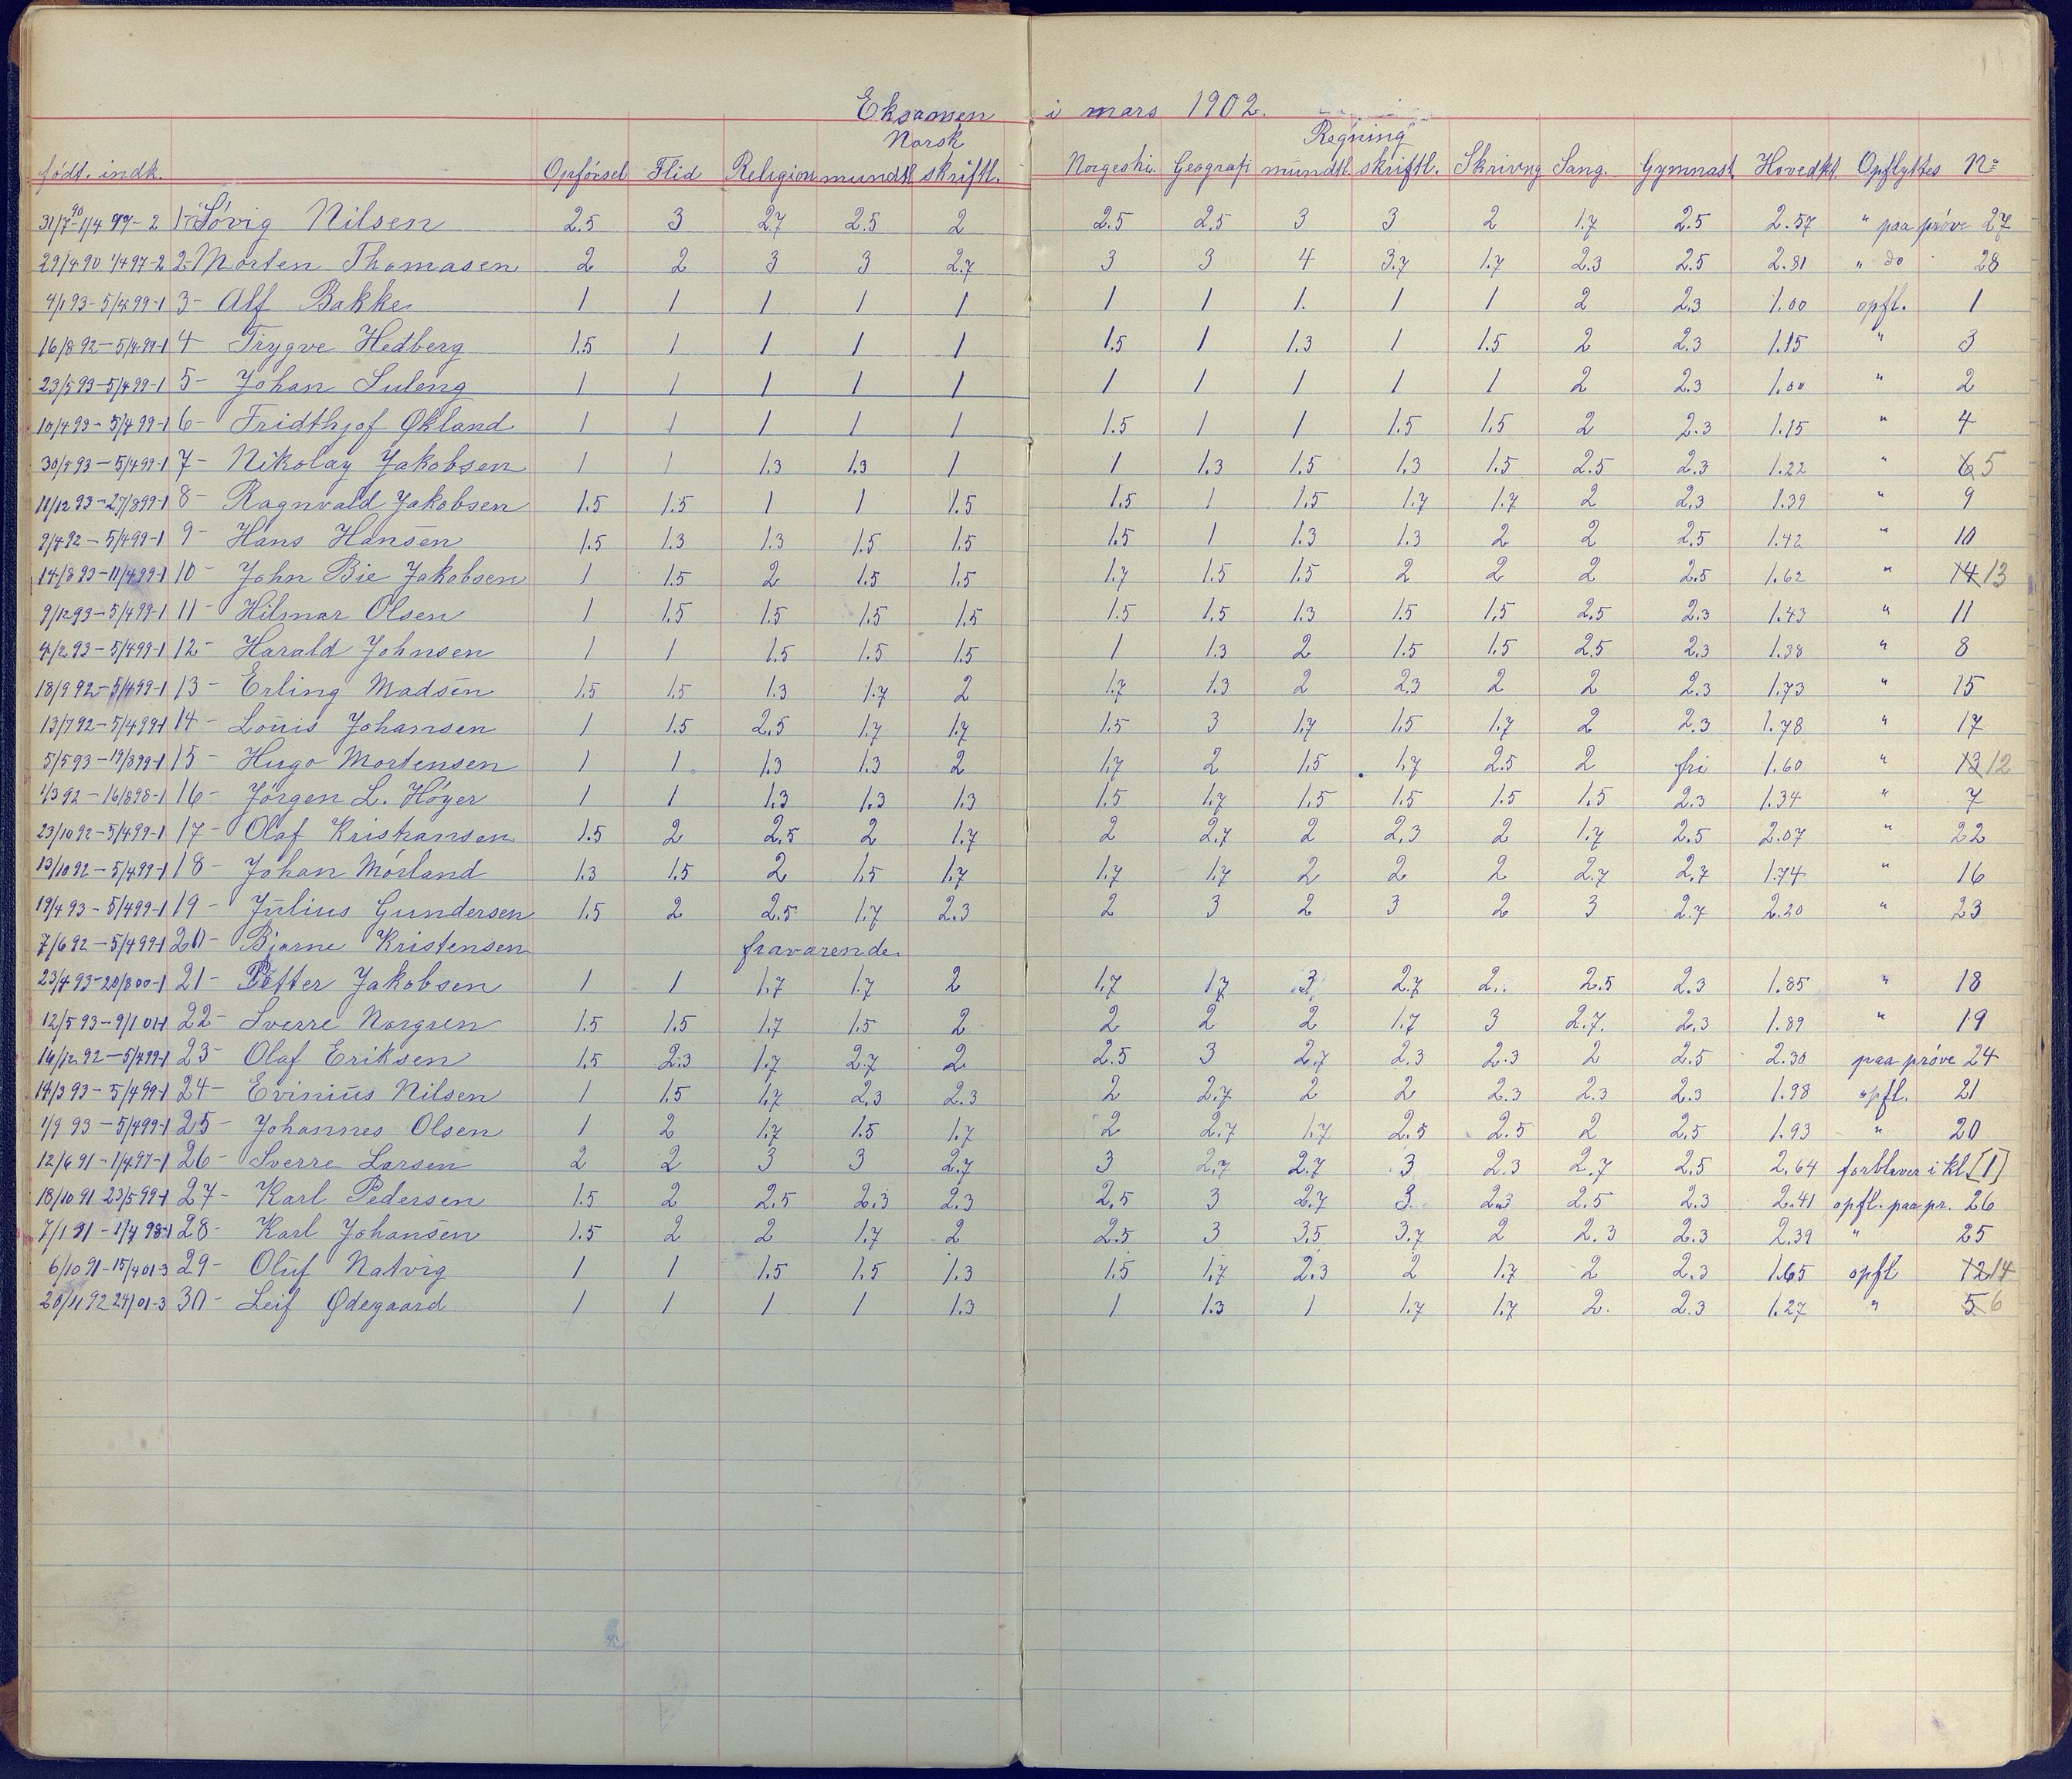 Eksamen i mars 1902.
Norsk Regning
født. indk. Opførsel Flid Religion mundtl. skriftl. Norgeshi. Geografi mundtl. skriftl. Skrivng Sang. Gymnast. Hovedkt. Opflyttes No
31/7-90 1/4 97-2 1- Søvig Nilsen 2.5 3 2.7 2.5 2 2.5 2.5 3 3 2 1.7 2.5 2.57 " paa prøve 27
29/4 90 1/4 97-2 2- Morten Thomasen 2 2 3 3 2.7 3 3 4 3.7 1.7 2.3 2.5 2.81 " do 28
4/1 93-5/4 99-1 3- Alf Bakke 1 1 1 1 1 1 1 1. 1 1 2 2.3 1.00 opfl. 1
16/8 92-5/4 99-1 4- Trygve Hedberg 1.5 1 1 1 1 1.5 1 1.3 1 1.5 2 2.3 1.15 " 3
23/5 93-5/4 99-1 5- Johan Suleng 1 1 1 1 1 1 1 1 1 1 2 2.3 1.00 " 2
10/4 93-5/4 99-1 6- Fridthjof Økland 1 1 1 1 1 1.5 1 1 1.5 1.5 2 2.3 1.15 " 4
30/5 93-5/4 99-1 7- Nikolay Jakobsen 1 1 1.3 1.3 1 1 1.3 1.5 1.3 1.5 2.5 2.3 1.22 " 6 5
11/12 93-27/8 99-1 8- Ragnvald Jakobsen 1.5 1.5 1 1 1.5 1.5 1 1.5 1.7 1.7 2 2.3 1.39 " 9
9/4 92-5/4 99-1 9- Hans Hansen 1.5 1.3 1.3 1.5 1.5 1.5 1 1.3 1.3 2 2 2.5 1.42 " 10
14/8 93-11/4 99-1 10- John Bie Jakobsen 1 1.5 2 1.5 1.5 1.7 1.5 1.5 2 2 2 2.5 1.62 " 14 13
9/12 93-5/4 99-1 11- Hilmar Olsen 1 1.5 1.5 1.5 1.5 1.5 1.5 1.3 1.5 1.5 2.5 2.3 1.43 " 11
4/2 93-5/4 99-1 12- Harald Johnsen 1 1 1.5 1.5 1.5 1 1.3 2 1.5 1.5 2.5 2.3 1.38 " 8
18/9 92-5/4 99-1 13- Erling Madsen 1.5 1.5 1.3 1.7 2 1.7 1.3 2 2.3 2 2 2.3 1.73 " 15
13/7 92-5/4 99-1 14- Louis Johansen 1 1.5 2.5 1.7 1.7 1.5 3 1.7 1.5 1.7 2 2.3 1.78 " 17
5/5 93-19/8 99-1 15- Hugo Mortensen 1 1 1.3 1.3 2 1.7 2 1.5 1.7 2.5 2 fri 1.60 " 13 12
1/3 92-16/8 98-1 16- Jørgen L. Høyer 1 1 1.3 1.3 1.3 1.5 1.7 1.5 1.5 1.5 1.5 2.3 1.34 " 7
23/10 92-5/4 99-1 17- Olaf Kristiansen 1.5 2 2.5 2 1.7 2 2.7 2 2.3 2 1.7 2.5 2.07 " 22
13/10 92-5/4 99-1 18- Johan Mørland 1.3 1.5 2 1.5 1.7 1.7 1.7 2 2 2 2.7 2.7 1.74 " 16
19/4 93-5/4 99-1 19- Julius Gundersen 1.5 2 2.5 1.7 2.3 2 3 2 3 2 3 2.7 2.20 " 23
7/6 92-5/4 99-1 20- Bjarne Kristensen fraværende.
23/4 93-20/8 00-1 21- Petter Jakobsen 1 1 1.7 1.7 2 1.7 1.7 3 2.7 2. 2.5 2.3 1.85 " 18
12/5 93-9/1 01-1 22- Sverre Norgren 1.5 1.5 1.7 1.5 2 2 2 2 1.7 3 2.7. 2.3 1.89 " 19
16/12 92-5/4 99-1 23- Olaf Eriksen 1.5 2.3 1.7 2.7 2 2.5 3 2.7 2.3 2.3 2 2.5 2.30 paa prøve 24
14/3 93-5/4 99-1 24- Evinius Nilsen 1 1.5 1.7 2.3 2.3 2 2.7 2 2 2.3 2.3 2.3 1.98 opfl. 21
1/9 93-5/4 99-1 25- Johannes Olsen 1 2 1.7 1.5 1.7 2 2.7 1.7 2.5 2.5 2 2.5 1.93 " 20
12/6 91-1/4 97-1 26- Sverre Larsen 2 2 3 3 2.7 3 2.7 2.7 3 2.3 2.7 2.5 2.64 forbliver i kl. [1]
18/10 91 23/5 99-1 27- Karl Pedersen 1.5 2 2.5 2.3 2.3 2.5 3 2.7 3 2.3 2.5 2.3 2.41 opfl. paa pr. 26
7/1 91-1/4 98-1 28- Karl Johansen 1.5 2 2 1.7 2 2.5 3 3.5 3.7 2 2.3 2.3 2.39 " 25
6/10 91-15/4 01-3 29- Oluf Natvig 1 1 1.5 1.5 1.3 1.5 1.7 2.3 2 1.7 2 2.3 1.65 opfl 12 14
20/11 92 24/ 01-3 30- Leif Ødegaard 1 1 1 1 1.3 1 1.3 1 1.7 1.7 2. 2.3 1.27 " 5 6